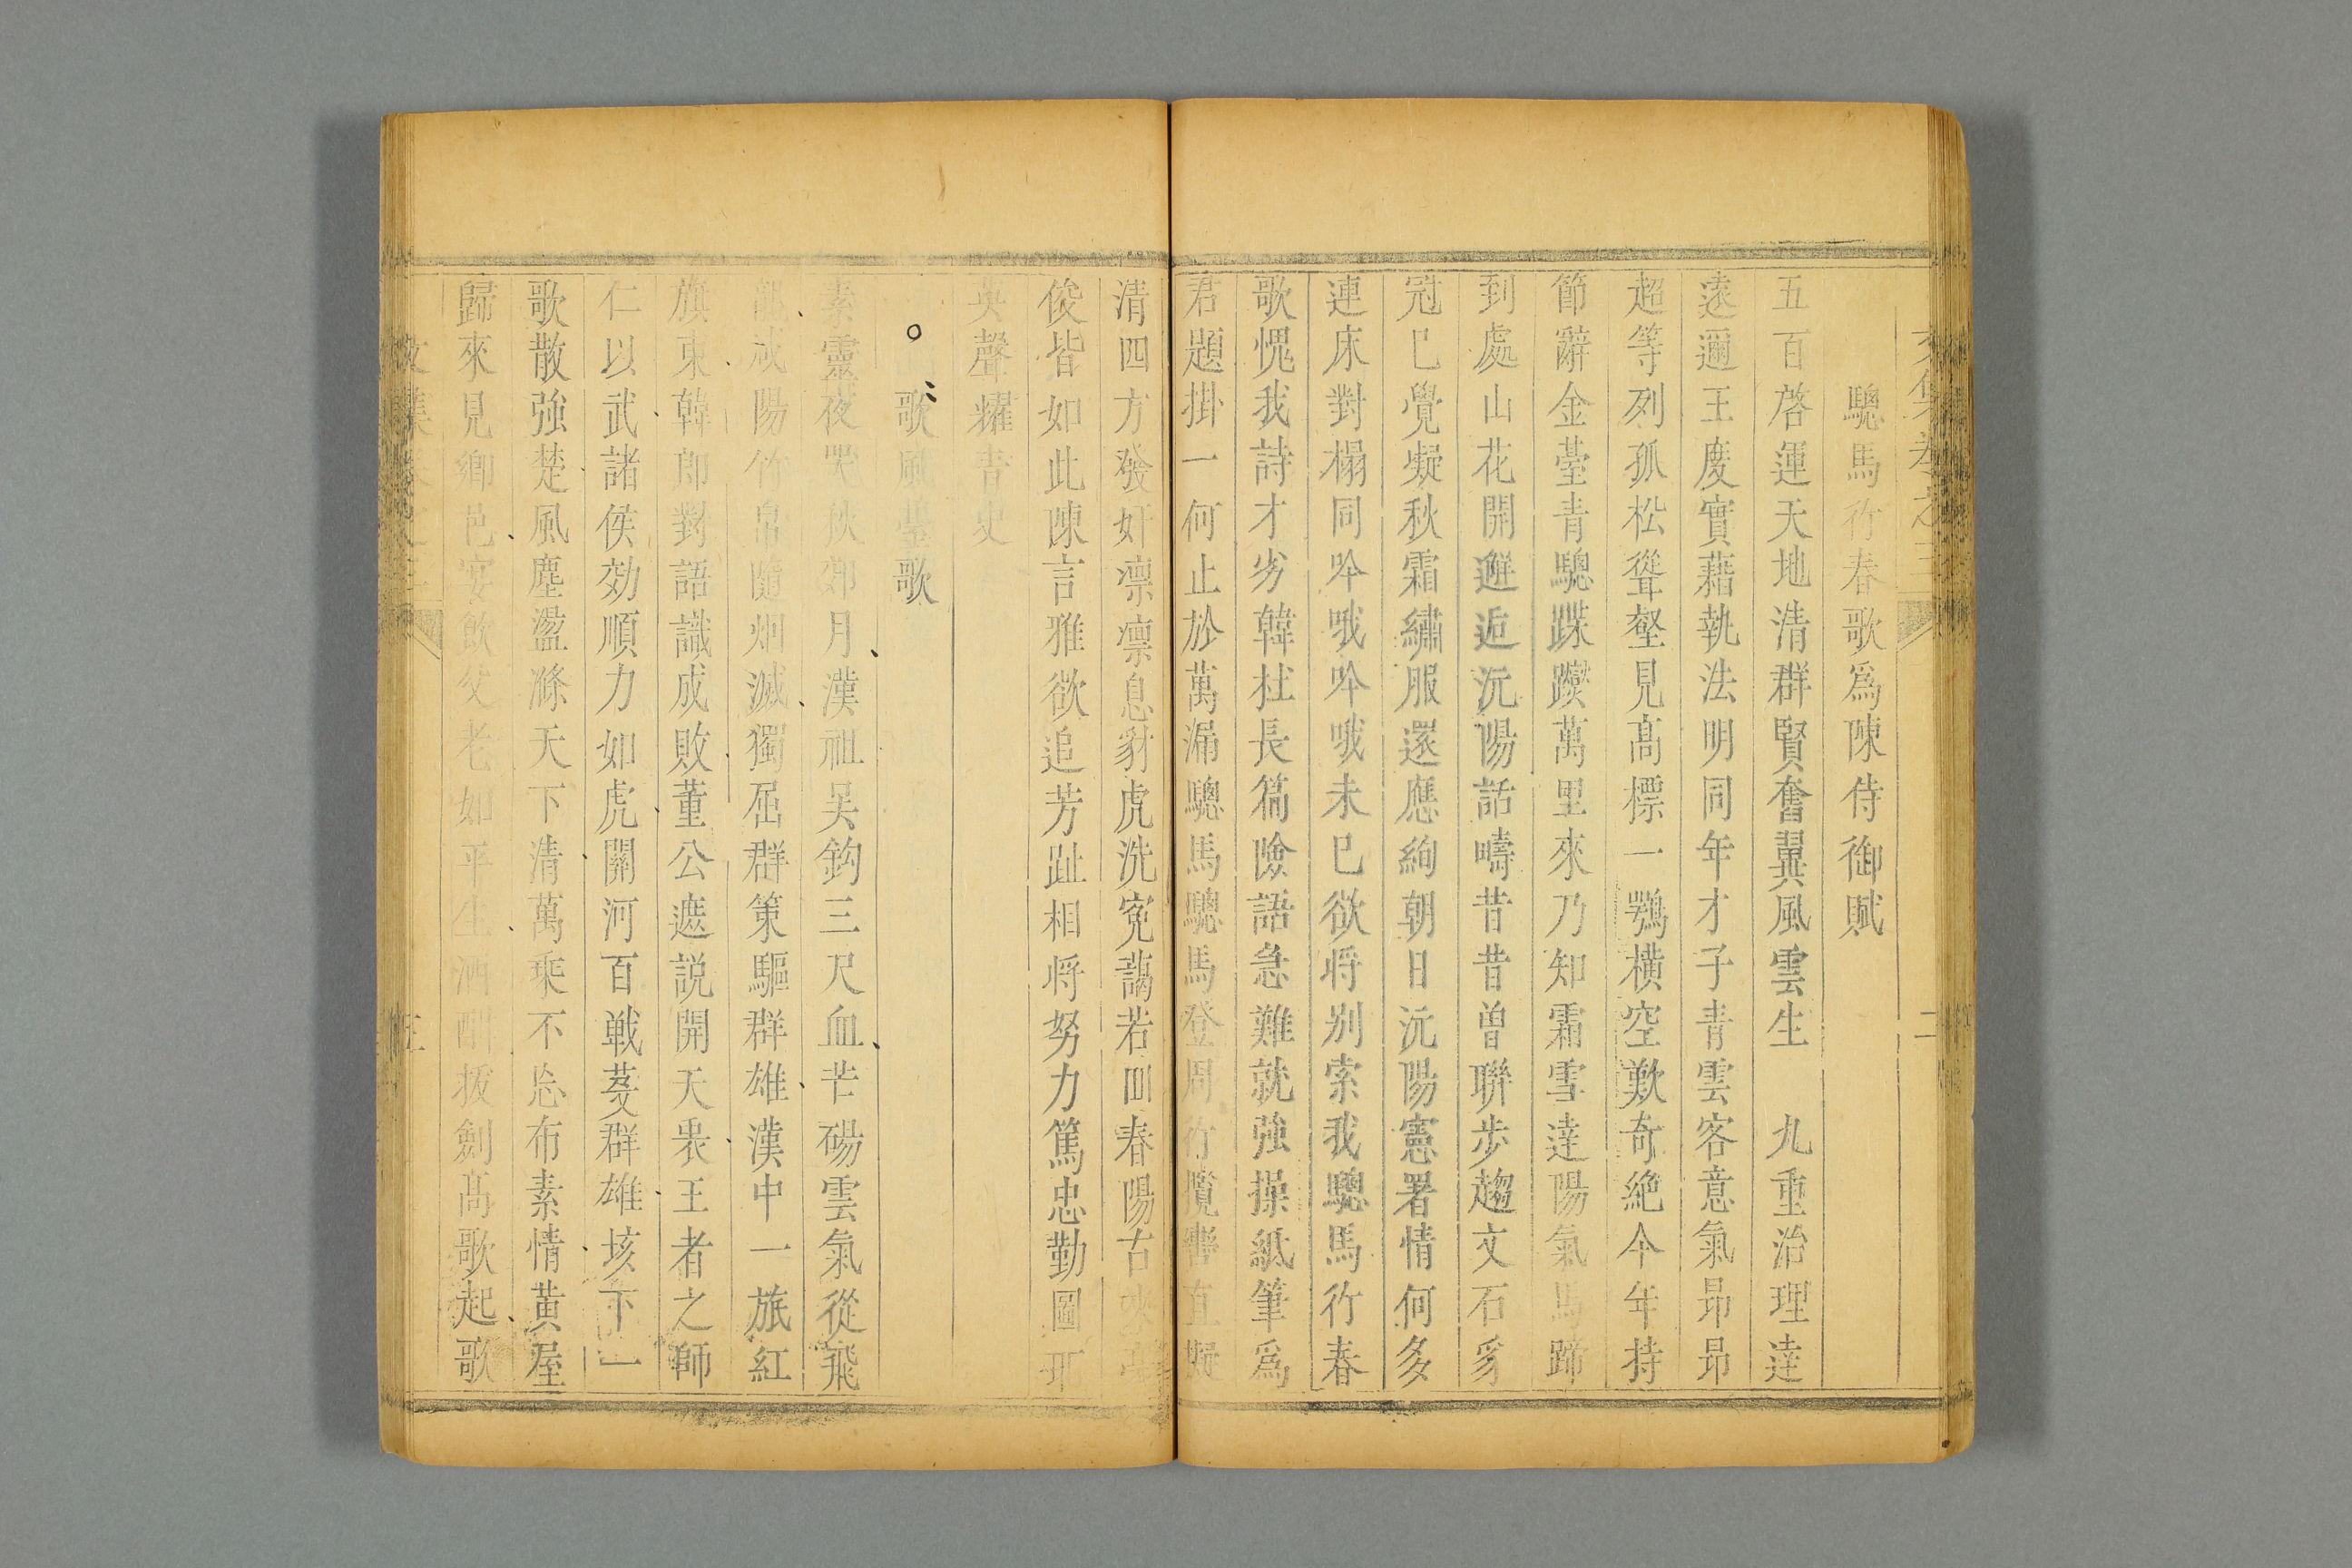 驄馬行春歌爲陳侍御賦
五百啓運天地清群賢奮翼風雲生　九重治理達
遠邇王度實藉執法明同年才子青雲客意氣昂昂
超等列孤松聳壑見髙標一鶚橫空歎奇絶今年持
節辭金臺青驄蹀躞萬里來乃知霜雪達陽氣馬蹄
到處山花開邂逅沅陽話疇昔昔曽聯步趨文石豸
冠已覺凝秋霜繡服還應絢朝日沅陽憲署情何多
連床對榻同吟哦吟哦未已欲将别索我驄馬行春
歌愧我詩才劣韓杜長篇險語急難就強操紙筆爲
君題掛一何止於萬漏驄馬驄馬登周行攬轡直
清四方發奸凛凛息豺虎洗寃藹若回春陽古來
俊皆如此陳言雅欲追芳趾相将努力篤忠勤圖
英聲耀青史
歌風臺歌
素靈夜哭秋郊月漢祖吴鈎三尺血芒碭雲氣從飛
龍咸陽竹帛隨烟滅獨屈群策驅群雄漢中一旅紅
旗東韓郎對語識成敗董公遮説開天衷王者之師
仁以武諸侯効順力如虎關河百戦芟群雄垓下一
歌散強楚風塵盪滌天下清萬乗不忘布素情黄屋
歸來見鄉邑宴飲父老如平生酒酣拔劍髙歌起歌